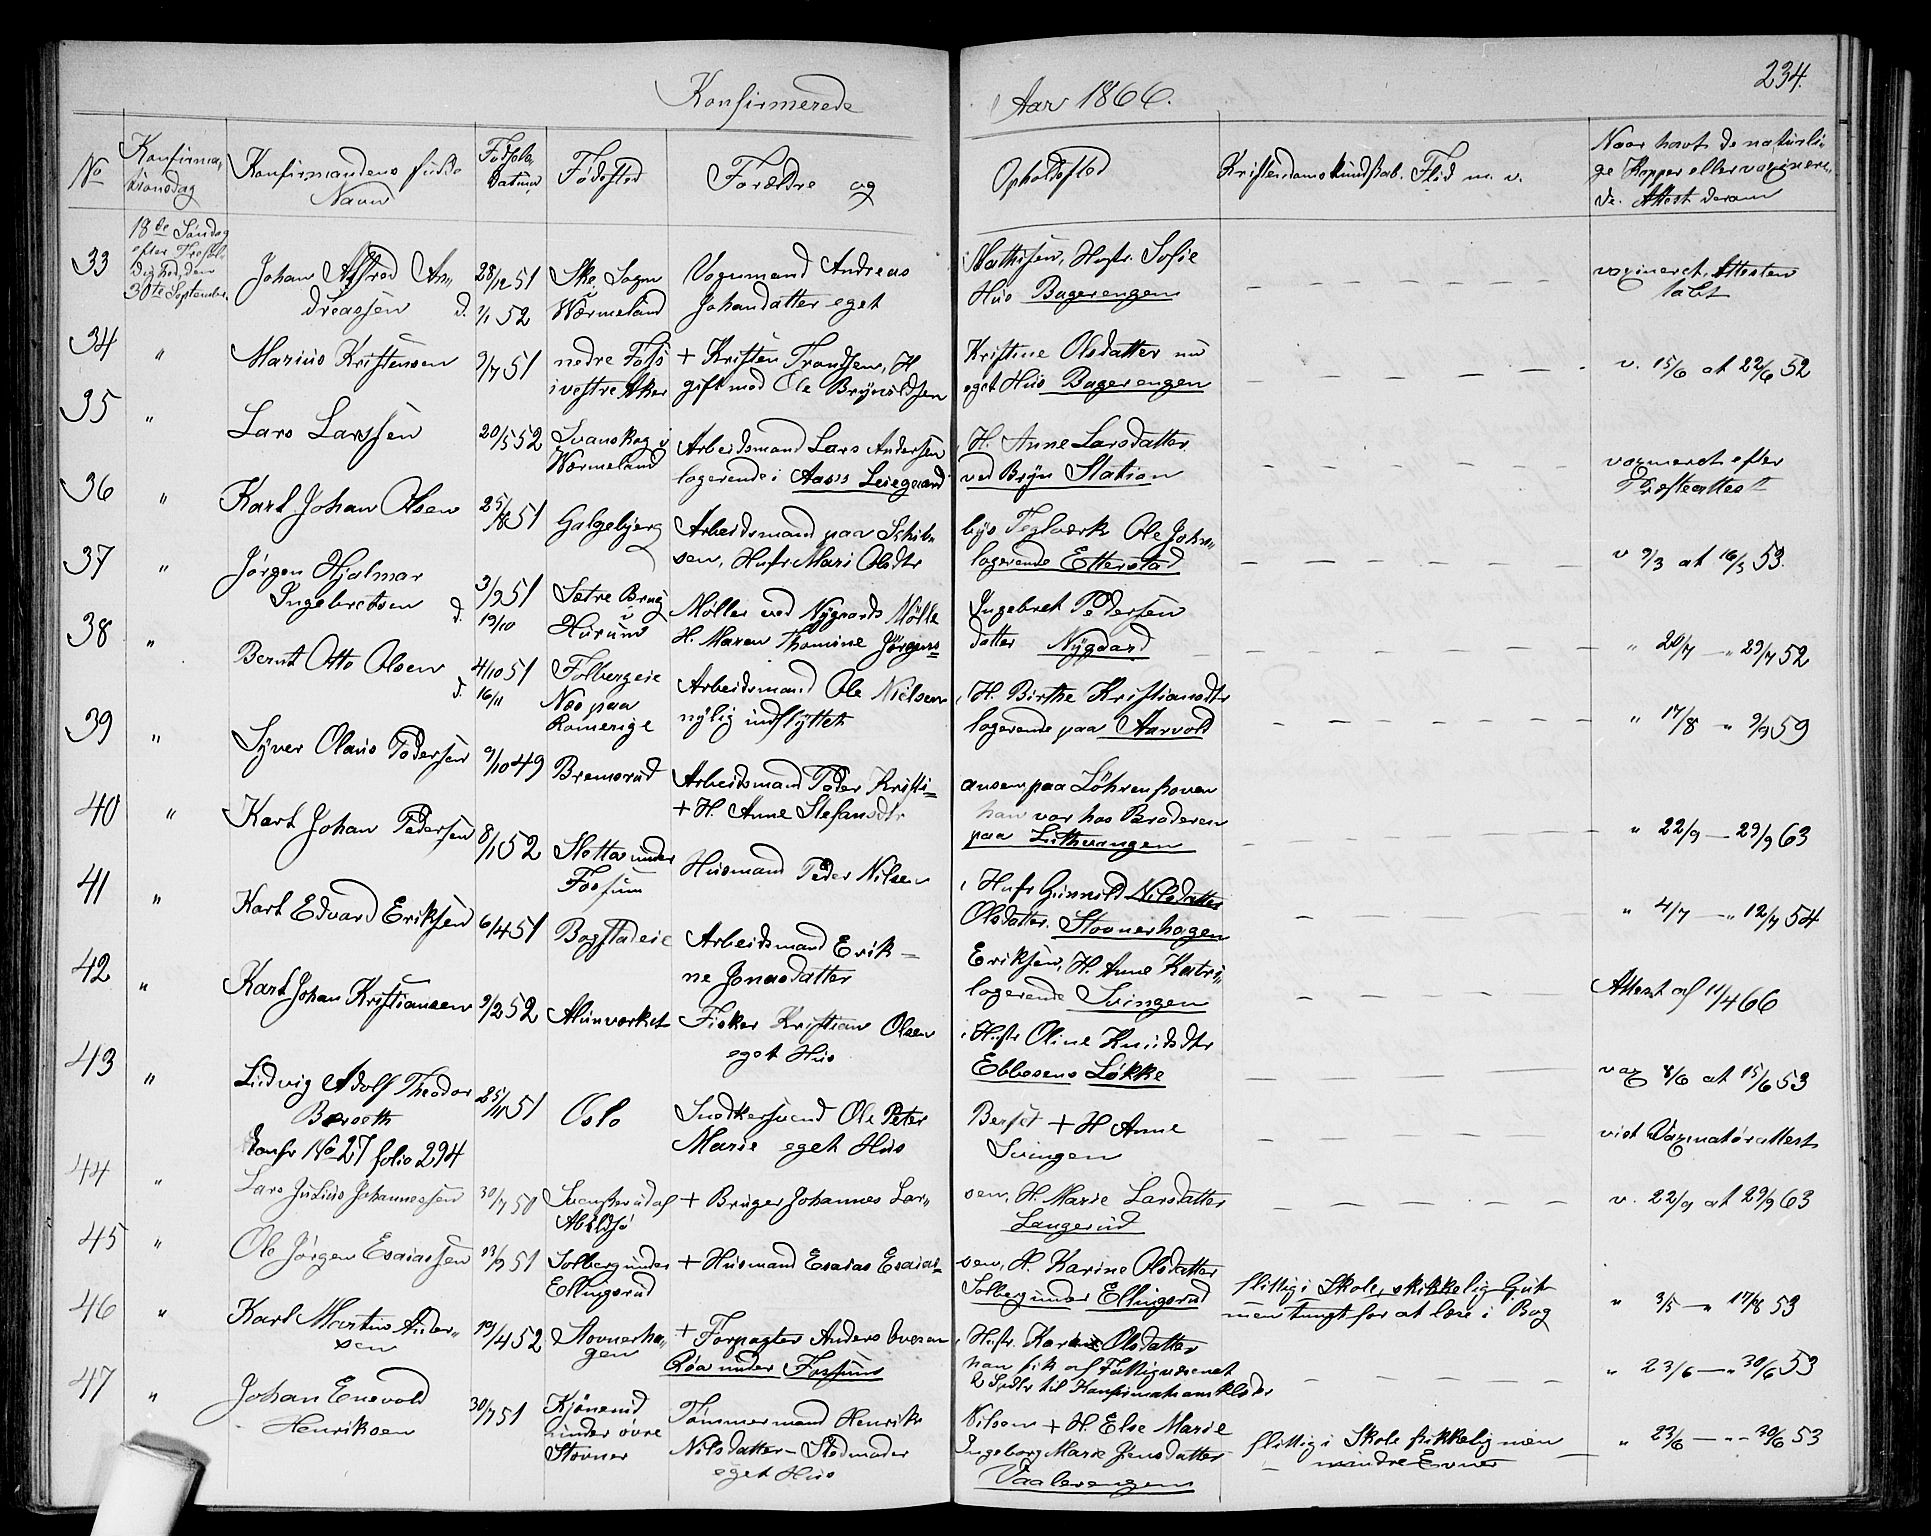 234.
Konfirmerede Aar 1866.
No
Konfirma,,
tionsdag
Konfirmandens fulde
Navn
Fødsels
Datum
Fødested
Forældre og
Opholdsted
Kristendomskundskab. Flid m. v.
Naar havt de naturli,,
ge Kopper eller vaxinere,,
de. Attest derom
33 18de Søndag
efter Trefol,,
dighed, den
30te September.
Johan Alfred An,,
dreassen d.
28/12 51
1/1 52
Ske Sogn
i Wærmeland
Vognmand Andreas
Johansdatter eget
Mathisen, Hustr. Sofie
Hus Bagerengen
vaxineret, Attesten
tabt
34 " Marius Kristensen 3/7 51 nedre Foss
i vestre Aker
+ Kristen Frandsen, H
gift med Ole Brynildsen
Kristine Olsdatter nu
eget Hus Bagerengen
v. 15/6 at 22/6 52
35 " Lars Larssen 20/5 52 Svanskog i
Wærmeland
Arbeidsmand Lars Andersen
logerende i Aass Leiegaard
H. Anne Larsdatter
ved Bryn Station
vaxineret efter
Præsteattest
36 " Karl Johan Olsen 25/8 51 Galgebjerg
Arbeidsmand paa Schib,,
sen, Hufr Mari Olsdtr
bys Teglværk Ole John,,
logerende Etterstad
v 9/3 at 16/3 53.
37 " Jørgen Hjalmar
Ingebretsen d.
3/9 51
19/10
Sætre Brug
i Hurum
Møller ved Nygaards Mølle
H. Maren Thomine Jørgens=
Ingebret Pedersen
datter Nygaard
" 20/7 - " 29/7 52
38 " Bernt Otto Olsen d. 4/10 51
16/11
Folbergeie
Næs paa
Romerige
Arbeidsmand Ole Nielsen
nylig indflyttet
, H. Birthe Kristiansdtr
logerende paa Aarvold
" 17/8 " 9/9 59
39 " Syver Olaus Pedersen 9/10 49 Bremsrud
Arbeidsmand Peder Kristi=
+ H. Anne Stefansdtr
ansen paa Löhrenskoven
han var hos Broderen
paa Lithuangen
" 22/9 - 29/9 63
40 " Karl Johan Pedersen 8/1 52 Slottet under
Fossum
Husmand Peder Nilsen
, Hufr Gunnild Nilsdatter
Olsdatter. Stovnerhagen
" 4/7 - " 12/7 54
41 " Karl Edvard Eriksen 6/4 51 Bogstadeie
Arbeidsmand Erik -
ne Jonasdatter
Eriksen, H. Anne Katri,,
logerende Svingen
Attest af 11/4 66
42 " Karl Johan Kristiansen 9/2 52 Alunværket
Fisker Kristian Olsen
eget Hus
, Hustr Oline Knudsdtr
Ebbesens Løkke
vax 8/6 at 15/6 53
43 " Ludvig Adolf Theodor
Berseth
Konfr No 27 folio 294
25/11 51 Oslo
Snedkersvend Ole Peter
Marie eget Hus
Berset + H Anne
Svingen
vist Vaxinatørattest
44 " Lars Julius Johannessen 30/7 50 Svenskerud af
Abildsø
+ Bruger Johannes Lar,,
sen, H. Marie Larsdatter
Langerud
v. 22/9 at 29/9 63
45 " Ole Jørgen Esaiassen 13/9 51 Solberg under
Ellingsrud
+ Husmand Esaias Esaias=
sen, H. Karine Olsdatter
Solberg under Ellingsrud
flittig i Skole, skikkelig Gut
men tungt for at lære i Bog
" 3/5 - " 17/8 53
46 " Karl Martin Ander,,
sen
19/4 52 Stovnerha,,
gen
+ Forpagter Anders Iversen
Røa under Fossum
, Hustr. Karine Olsdatter
han fik af Fattigvæsenet
2 Spdlr til Konfirmationsklæder
" 23/6 - " 30/6 53
47 " Johan Enevold
Henriksen
30/7 51 Kjønerud
under øvre
Stovner
Tømmermand Henrik
Nilsdatter - Stedmoder
eget Hus
Nilsen + H. Else Marie
Ingeborg Marie Jensdatter
Vaalerengen
flittig i Skole skikkelig men
mindre Evner
" 23/6 - " - 30/6 53